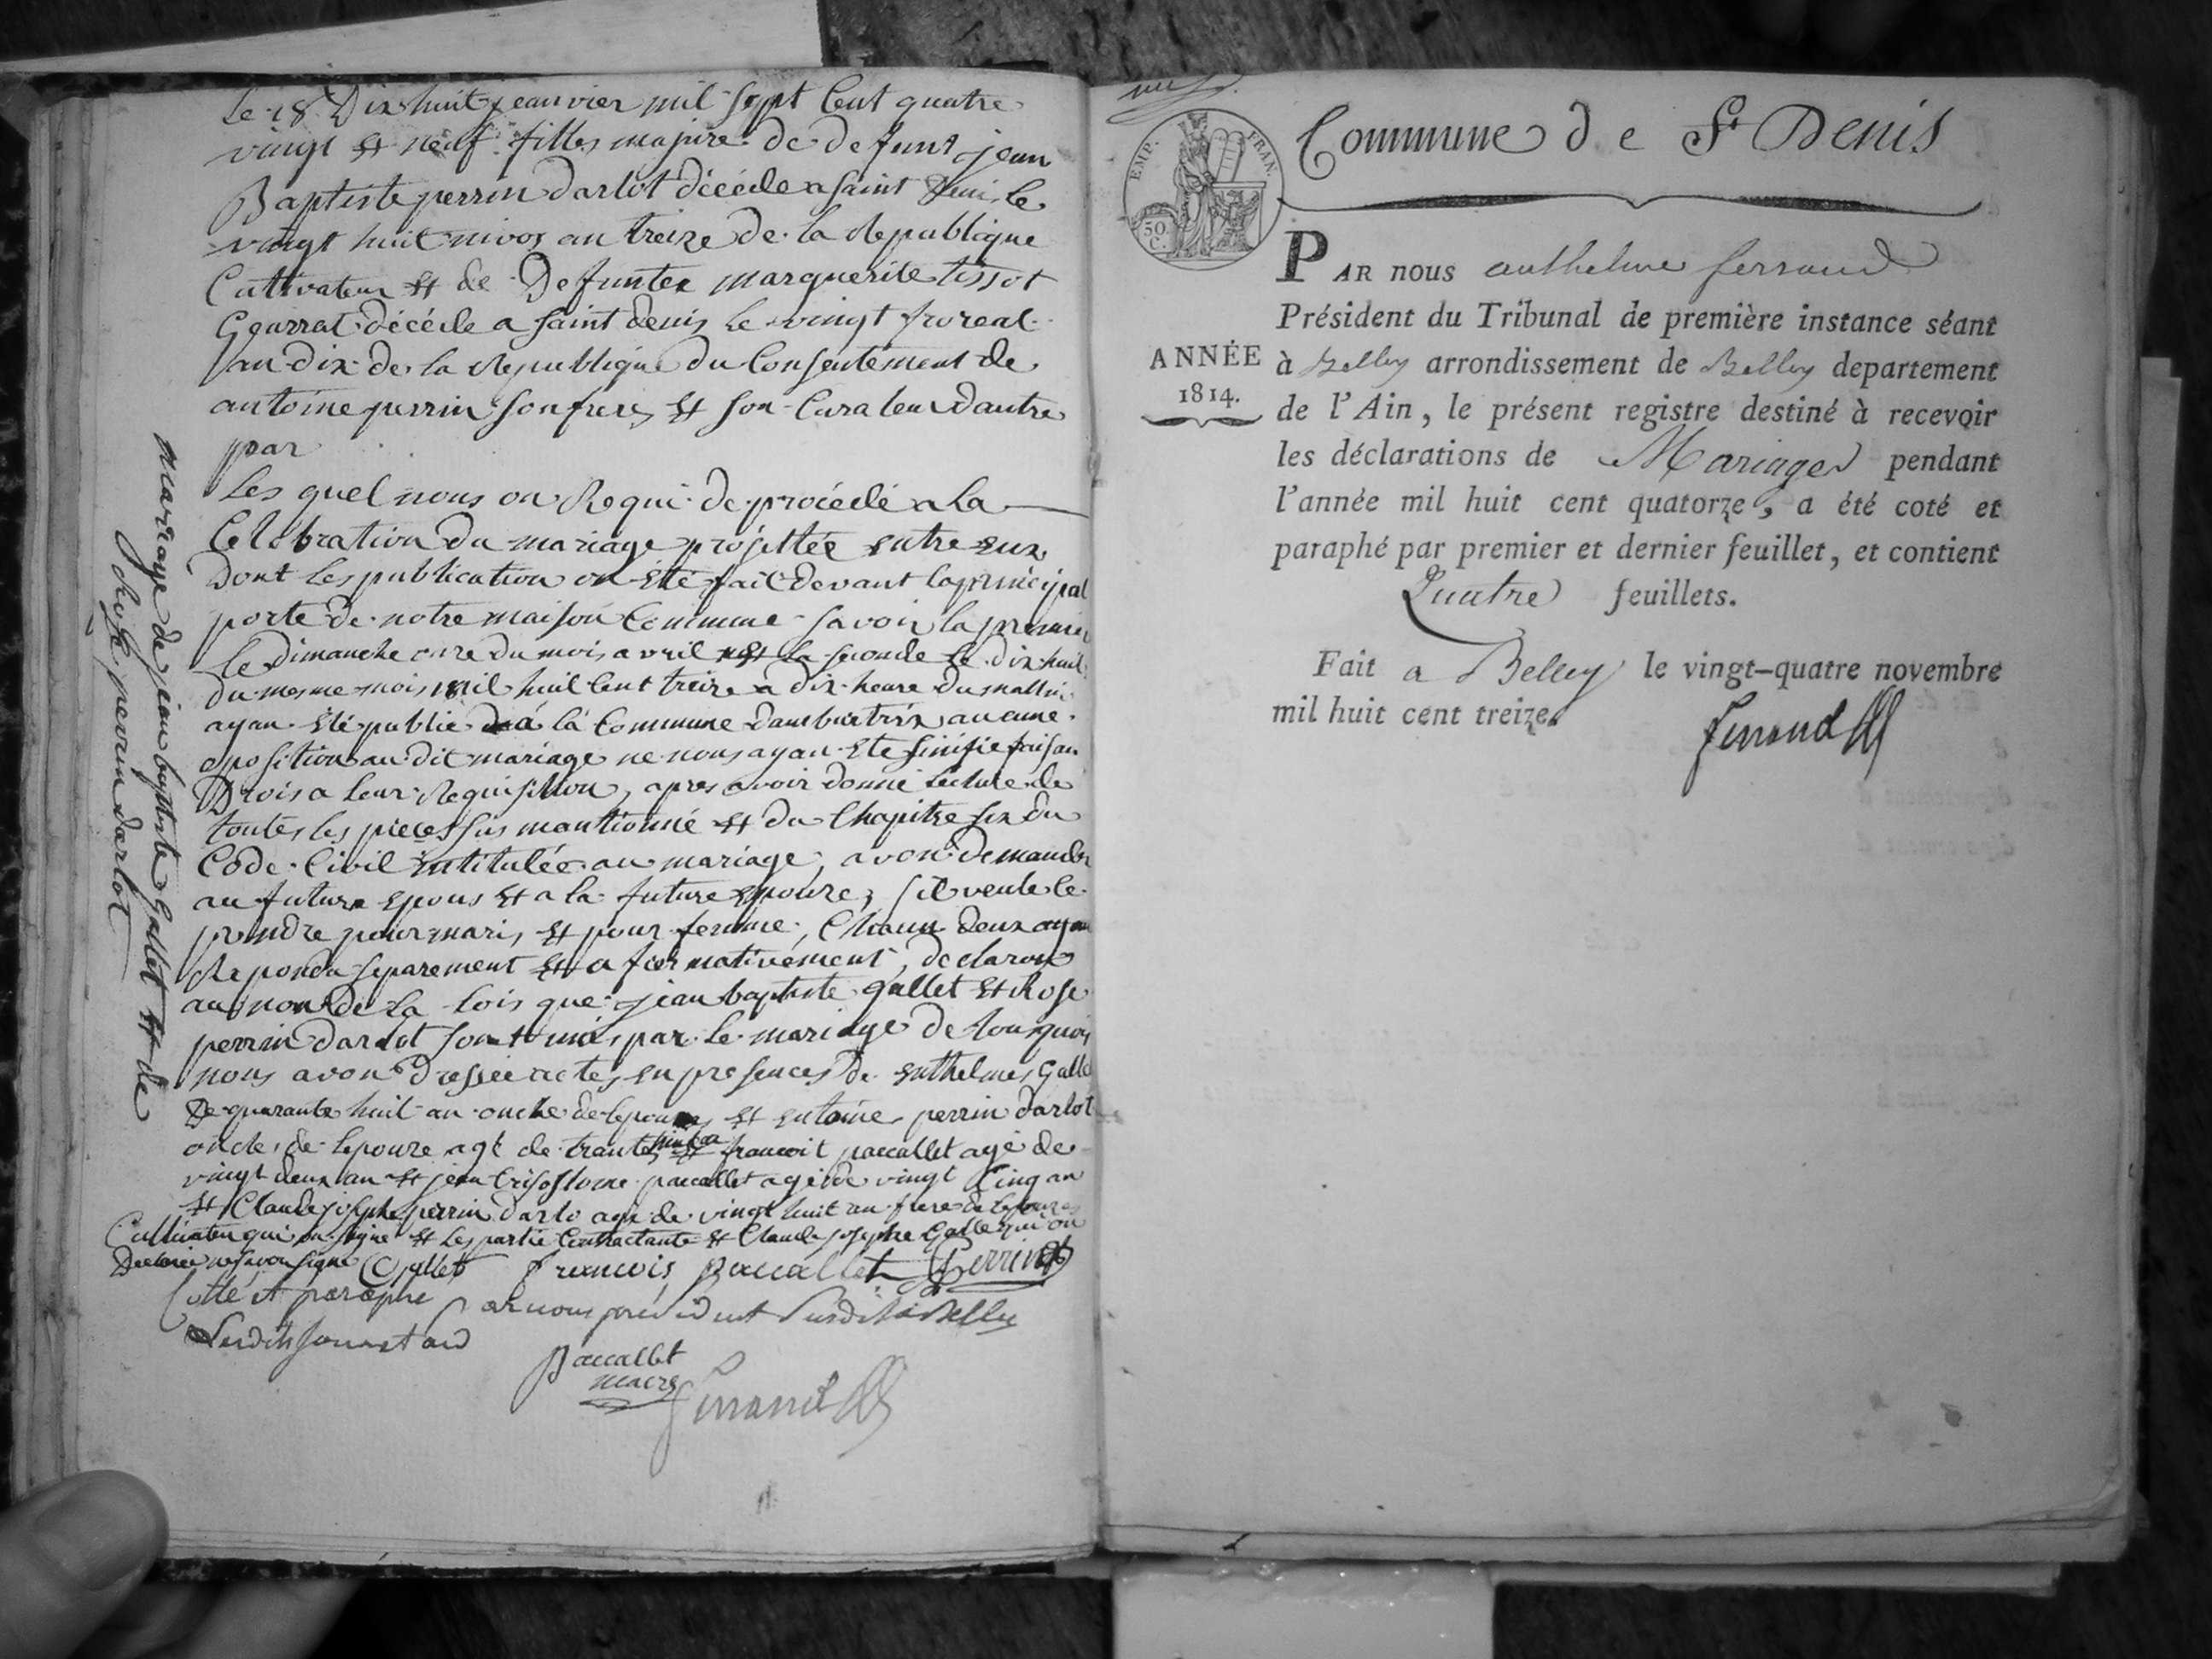 le 18 Dix huit jeanvier mil sept Cent quatre
vingt et neuf filles majure de defunt jean
Baptiste perrin darlot décéde a saint Denis le
vingt huit nivos an treize de la Republique
Cultivateur et de Defuntes marguerite tissot
Geurrat décéde a saint denis le vingt froreal
an dix de la Republique du Consentement de
antoine perrin son frere, et son Curateur dautre
par
Les quel nous on Requi de procédé a la
Celebration du mariage projettée entre eux
Dont les publication on été fait devant la principal
porte de notre maison Commune savoir la premier
le dimanche onze du mois avril et la seconde le dix huit
du mesme mois mil huit Cent treize a dix heure du mattin
ayan été publié a la Commune aucune
oposition au dit mariage ne nous ayan été sinifie faisan
Drois a leur Requisition, apres avoir donné lecture de
toutes les pieces sus mantionné et du Chapitre six du
Code Civil intitulée au mariage, avon demander
au future epous et a la future epouze, sil veule le
prendre pour mari, et pour femme, Chacun deux ayan
Repondu séparement et afiermativement, declaron
au non de la lois que jean baptiste gallet et Rose
perrin darlot sont unis par le mariage de tousquoi
nous avon dressée actes en presences de enthelmes Gallet
De quarante huit an oncle de lepouz et entoine perrin darlot
oncle de lepouze agé de trante huit an francoit paccallet agé de
vingt deux an et jean Crisostome paccallet agé de vingt Cinq an
et Claude joseph perrin darlo agé de vingt huit an frere de lepouze
Cultivateu qui on signé et les partie Contractante et Claude josephe Galle qui on
Declarée ne savon signe Gallet francois paccallet Perrin
Cotté et paraphé par nous president susdit a Belley
Lesdits jour et an
paccallet
maire
ferrand
mariage de jean baptiste Gallet et de
Rose perrin darlot
Commune de St Denis
EMP. FRAN.
50
C.
PAR nous anthelme ferrand
Président du Tribunal de première instance séant
ANNÉE
1814.
à Belley arrondissement de Belley departement
de l'Ain, le présent registre destiné à recevoir
les déclarations de Mariages pendant
l'année mil huit cent quatorze, a été coté et
paraphé par premier et dernier feuillet, et contient
Quatre feuillets.
Fait a Belley le vingt-quatre novembre
mil huit cent treize.
ferrand